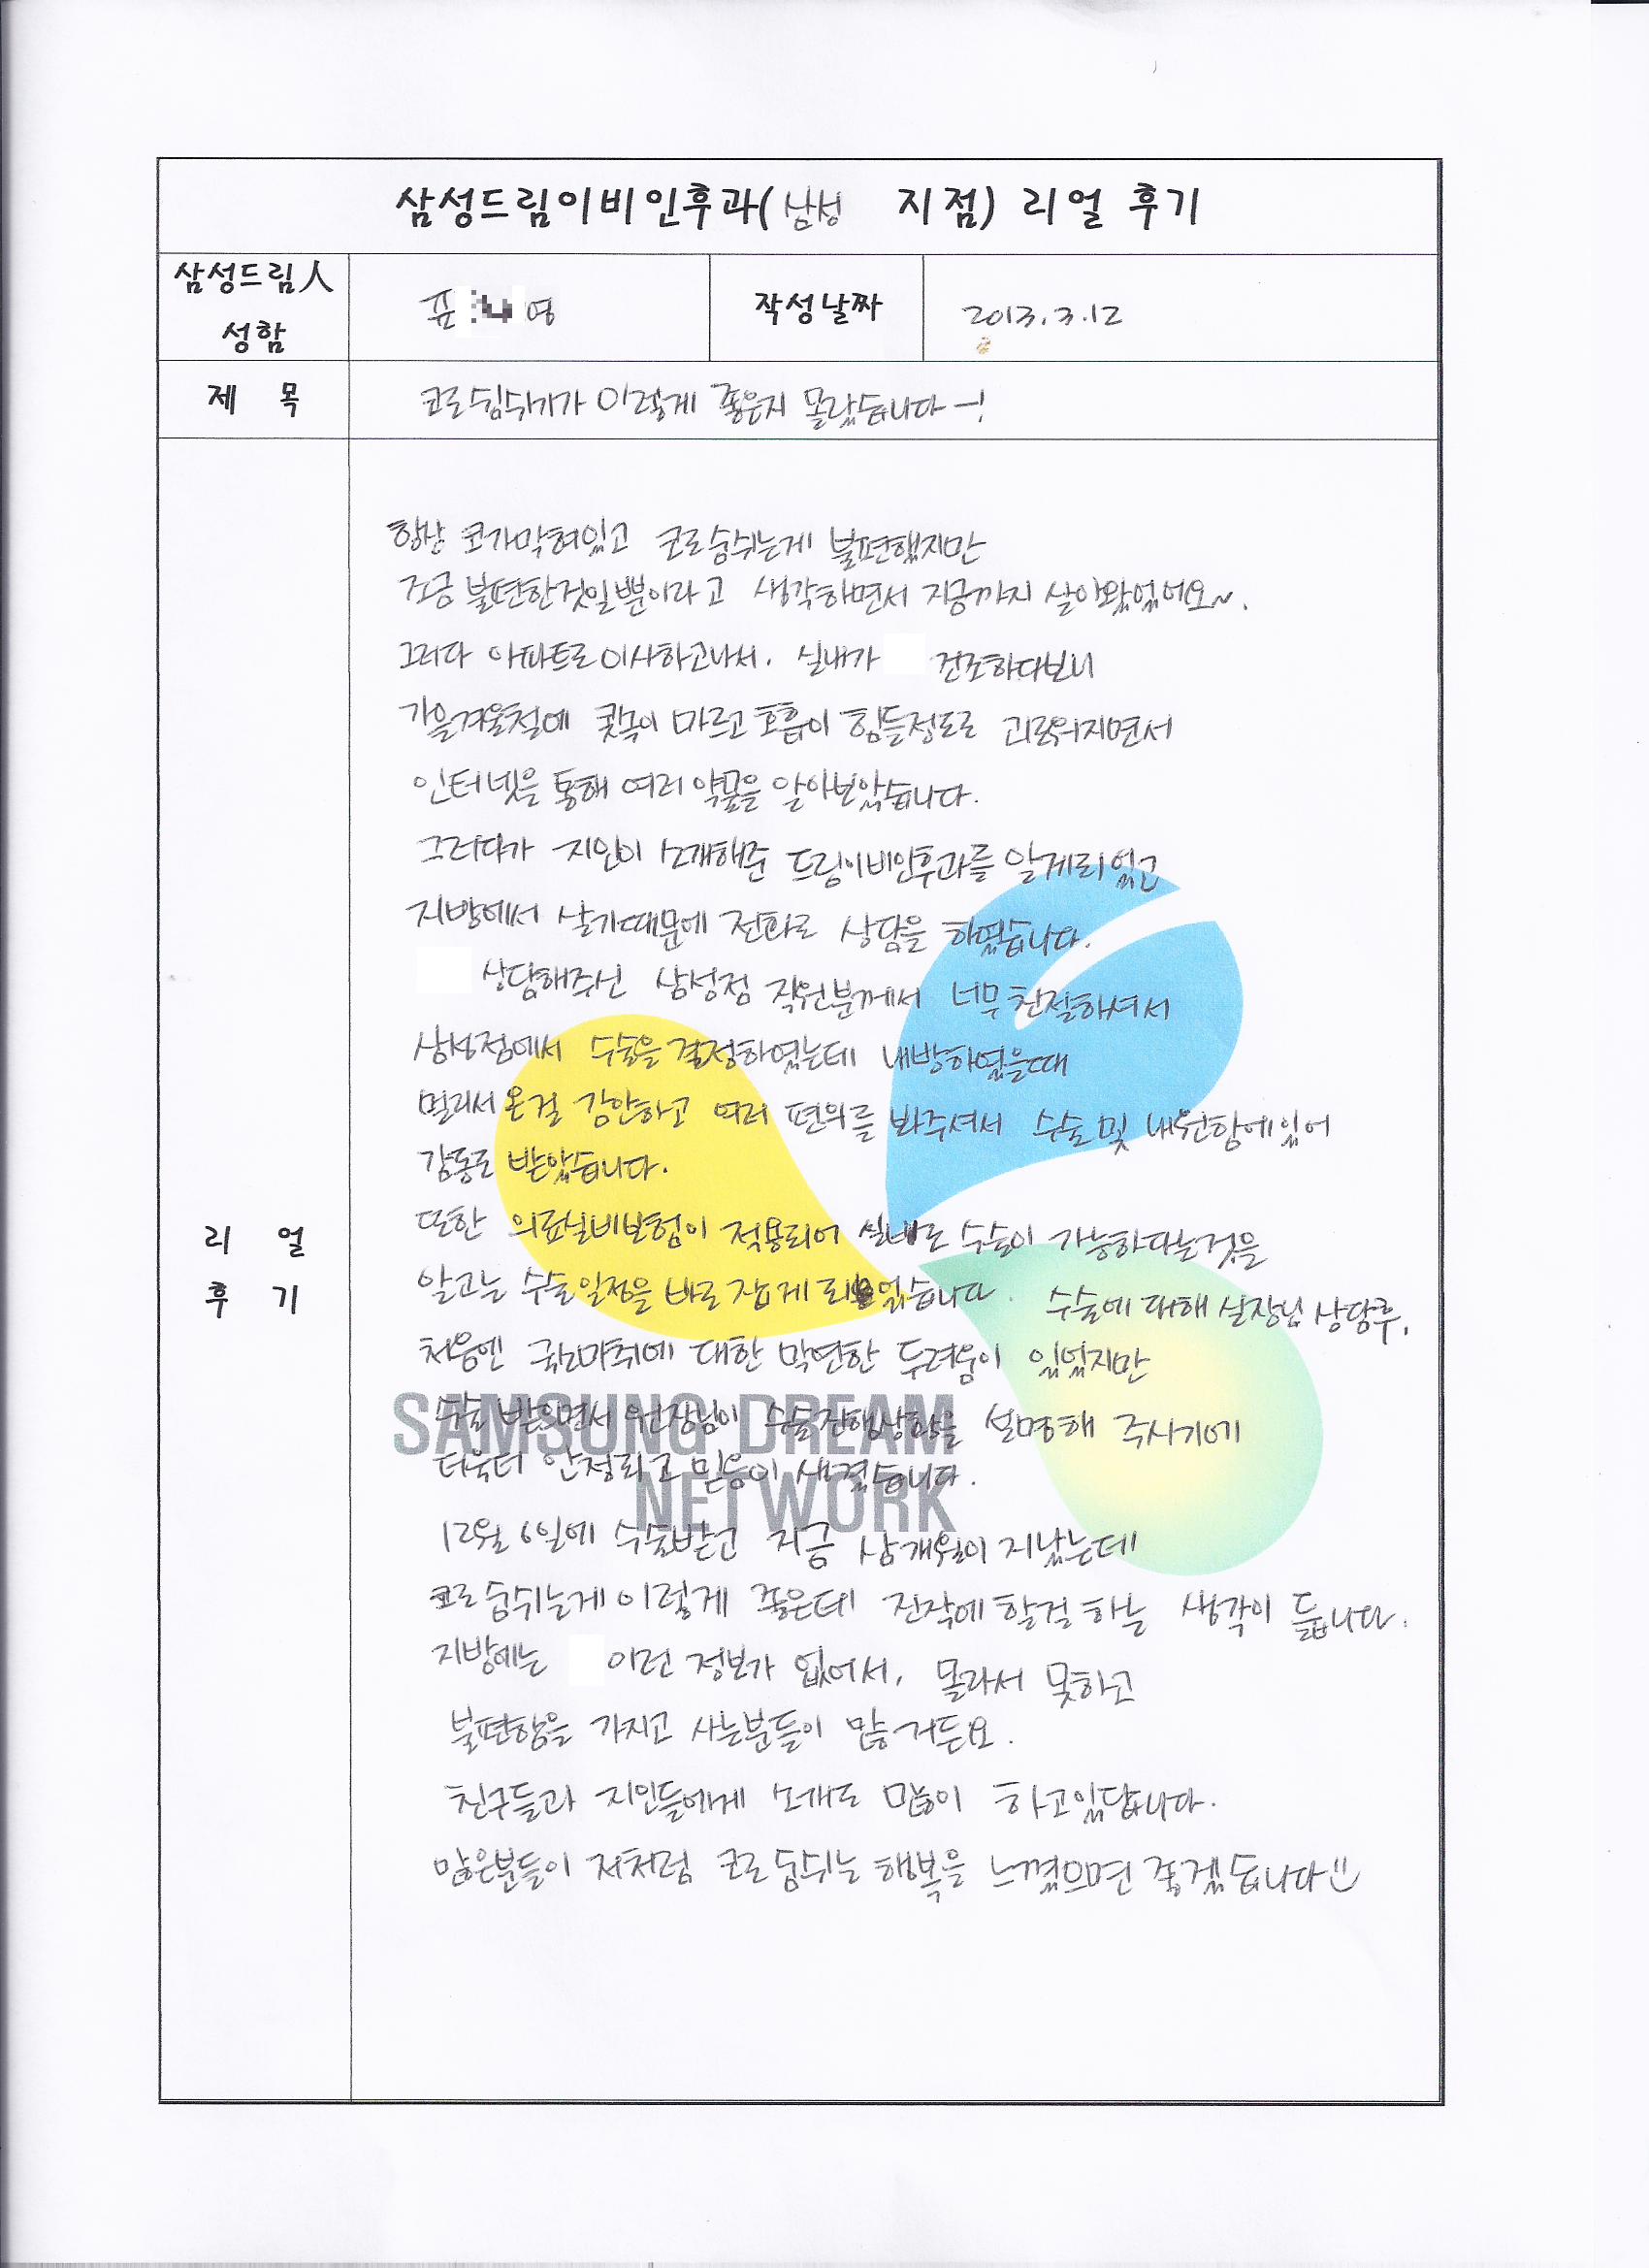 삼성드림이비인후과(삼성 지점) 리얼 후기
삼성드림人
성함
표 영
작성날짜
2013.3.12
제 목
코로숨쉬기가 이렇게 좋은지 몰랐습니다-!
항상 코가막혀있고 코로숨쉬는게 불편했지만
조금 불편한것일뿐이라고 생각하면서 지금까지 살아왔었어요~.
그러다 아파트로이사하고나서. 실내가 건조하다보니
가을겨울철에 콧속이 마르고 호흡이 힘들정도로 괴로워지면서
인터넷을 통해 여러 약물을 알아보았습니다.
그러다가 지인이 소개해준 드림이비인후과를 알게되었고
지방에서 살기때문에 전화로 상담을 하였습니다.
상담해주신 삼성점 직원분께서 너무친절하셔서
삼성점에서 수술을결정하였는데 내방하였을때
멀리서 온걸 감안하고 여러 편의를 봐주셔서 수술 및 내원함에있어
감동도 받았습니다.
또한 의료실비보험이 적용되어 실비로 수술이 가능하다는것을
알고는 수술일정을 바로 잡게 되었습니다. 수술에 대해 실장님 상담후,
처음엔 국소마취에 대한 막연한 두려움이 있었지만
수술 받으면서 원장님이 수술진행상황을 설명해 주시기에
더욱더 안정되고 믿음이 생겼습니다.
12월 6일에 수술받고 지금 삼개월이 지났는데
코로숨쉬는게이렇게 좋은데 진작에할걸하는 생각이 듭니다.
지방에는 이런 정보가 없어서, 몰라서 못하고
불편함을 가지고 사는분들이 많거든요.
친구들과 지인들에게 소개도 많이 하고있답니다.
많은분들이 저처럼 코로 숨쉬는 행복을 느꼈으면 좋겠습니다
리 얼
후 기
SAMSUNG DREAM
NETWORK